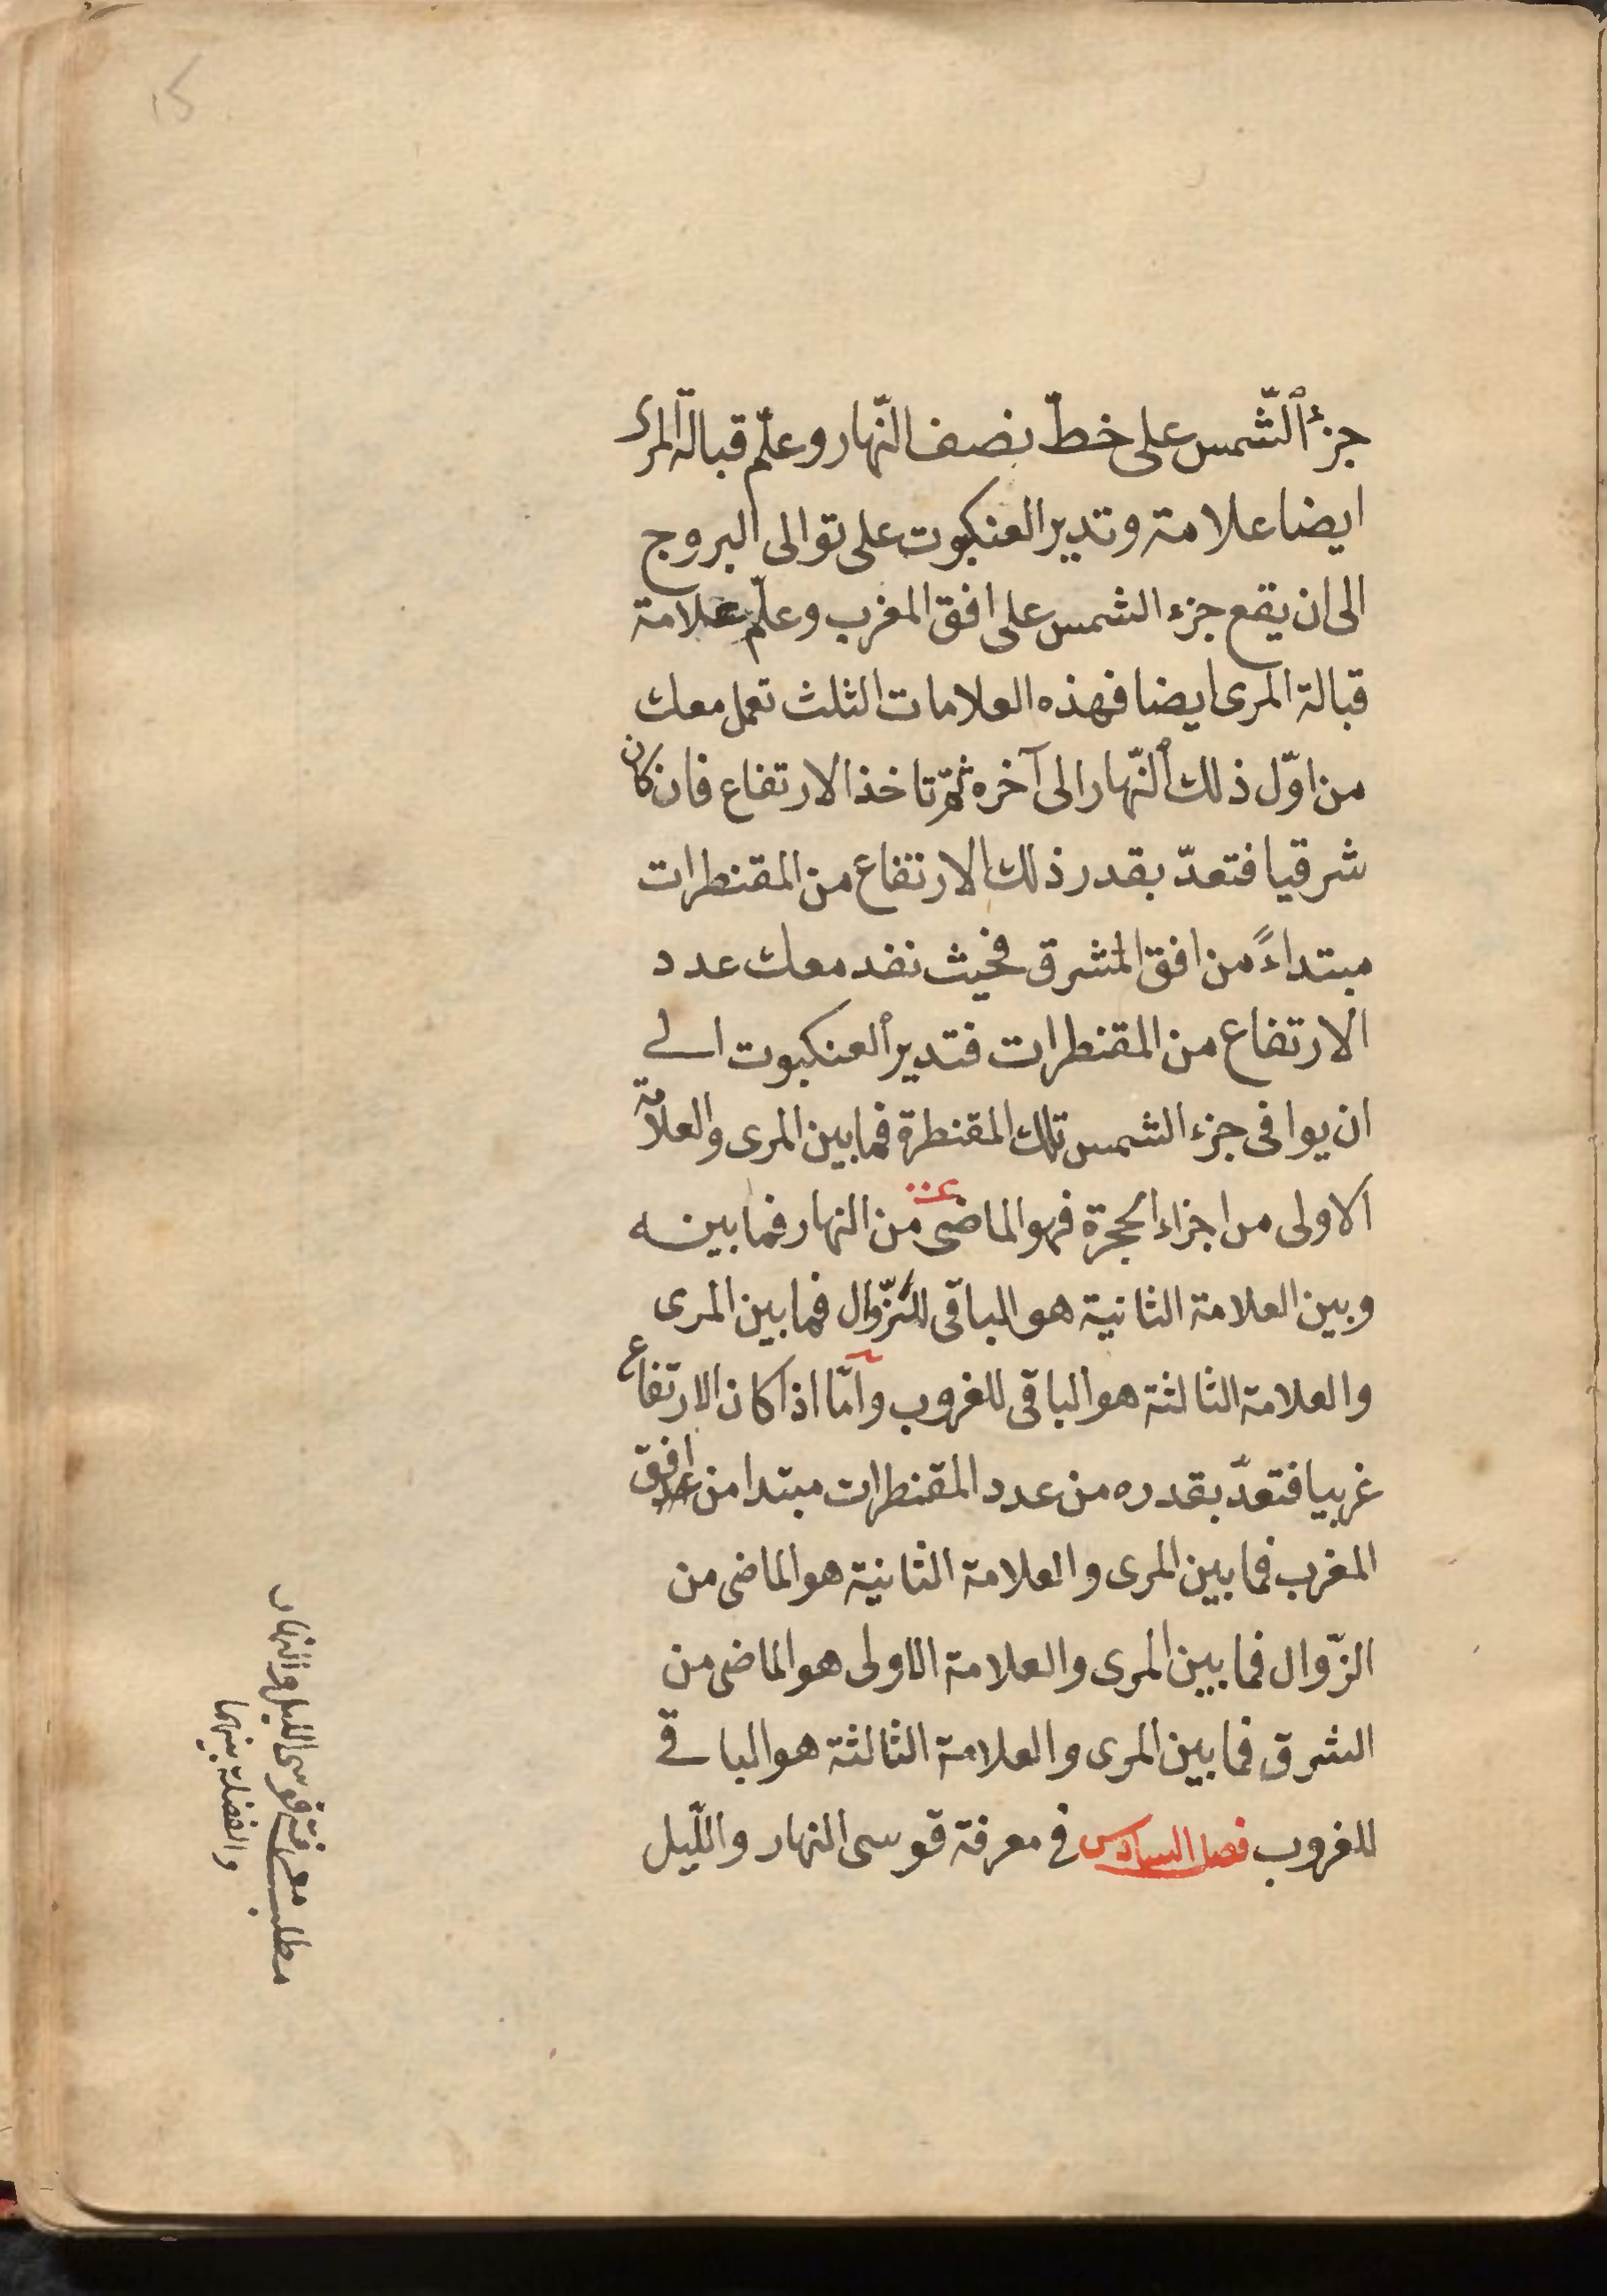 جزء الشّمس على خطّ نصف النّهار وعلّم قبالة المرى
ايضا علامة وتدير العنكبوت على توالى البروج
الى ان يقع جزء الشمس على افق المغرب وعلّم علامة
قبالة المرى ايضا فهذه العلامات الثلث تعمل معك
من اوّل ذلك النّهار الى آخره ثمّ تاخذ الارتفاع فان كان
شرقيا فتعدّ بقدر ذلك الارتفاع من المقنطرات
مبتداءً من افق المشرق فحيث نفد معك عدد
الارتفاع من المقنطرات فتدير العنكبوت الى
ان يوافى جزء الشمس تلك المقنطرة فما بين المرى والعلامة
الاولى من اجزاء الحجرة فهو الماضى من النهار فما بينه
وبين العلامة الثانية هو الباقى للزّوال فما بين المرى
والعلامة الثالثة هو الباقى للغروب وامّا اذا كان الارتفاع
غربيا فتعدّ بقدره من عدد المقنطرات مبتدا من افق
المغرب فما بين المرى والعلامة الثانية هو الماضى من
الزّوال فما بين المرى والعلامة الاولى هو الماضى من
الشرق فما بين المرى والعلامة الثالثة هو الباقى
للغروب فصل السادس فى معرفة قوسى النهار واللّيل
مطلب معرفة قوسى الليل والنهار
والفضلة بينهما